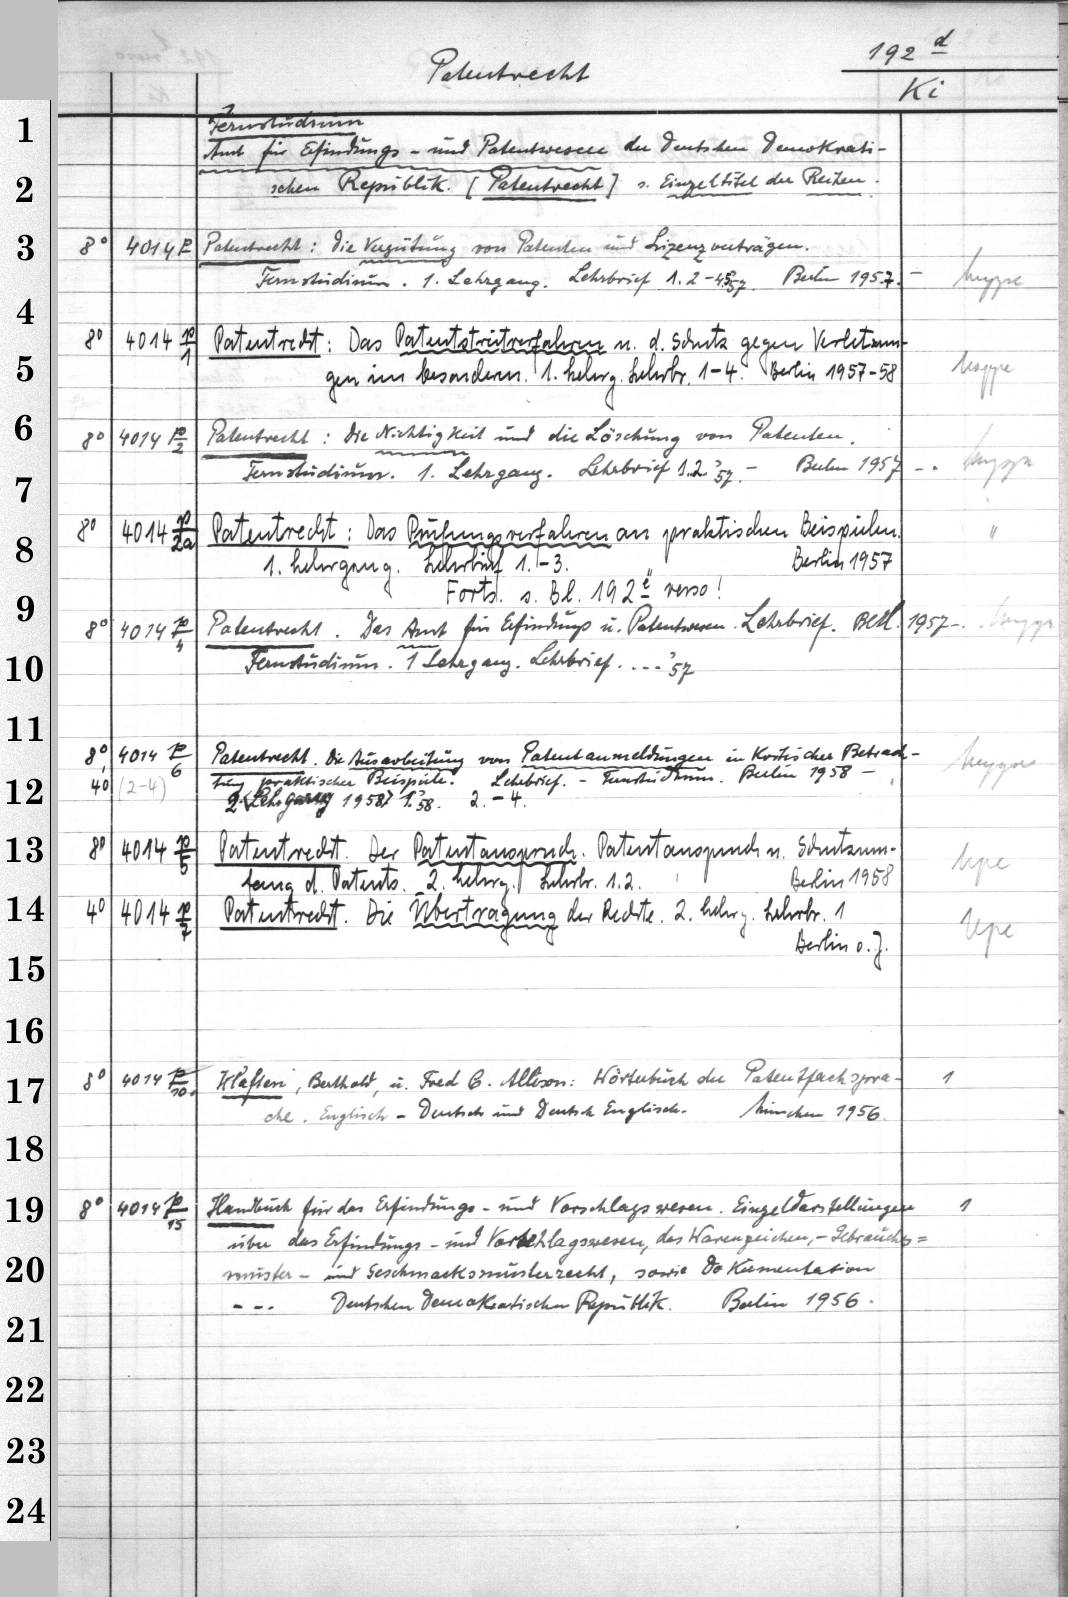 192 d
Patentrecht
Ki
1
Fernstudium
Amt für Erfindungs- und Patentwesen der Deutschen Demokrati-
2
schen Republik. [Patentrecht] s. Einzeltitel der Reihen.
3
8° 4014 P Patentrecht: Die Vergütung von Patenten und Lizenzverträgen.
Fernstudium. 1. Lehrgang. Lehrbrief 1.2-4 57. Berlin 1957. - Mappe
4
8° 4014 P/1 Patentrecht: Das Patentstreitverfahren u. d. Schutz gegen Verletzun-
5
gen im besondern. 1. Lehrg. Lehrbr. 1-4. Berlin 1957-58 Mappe
6
8° 4014 P/2 Patentrecht: Die Nichtigkeit und die Löschung von Patenten.
Fernstudium. 1. Lehrgang. Lehrbrief 1.2.'57. - Berlin 1957 -. Mappe
7
8° 4014 P/2a Patentrecht: Das Prüfungsverfahren an praktischen Beispielen. "
8
1. Lehrgang. Lehrbrief 1.-3. Berlin 1957
Forts. s. Bl. 192 e verso!
9
8° 4014 P/4 Patentrecht. Das Amt für Erfindungs u. Patentwesen. Lehrbrief. Berl. 1957-. Mappe
10
Fernstudium. 1 Lehrgang. Lehrbrief. ...'57
11
8°, 4014 P/6 Patentrecht. Die Ausarbeitung von Patentanmeldungen in kritischer Betrach- Mappe
12
4° (2-4) tung praktischer Beispiele. Lehrbrief. - Fernstudium. Berlin 1958 -
2. Lehrgang 1958 1.'58. 2.-4.
13
8° 4014 P/5 Patentrecht. Der Patentanspruch. Patentanspruch u. Schutzum-
fang d. Patents. 2. Lehrg. Lehrbr. 1.2. Berlin 1958 Mpe
14
4° 4014 P/7 Patentrecht. Die Übertragung der Rechte. 2. Lehrg. Lehrbr. 1 Mpe
Berlin o.J.
15
16
17
8° 4014 P/10. Klaften, Berthold, u. Fred C. Allison: Wörterbuch der Patentfachspra- 1
che. Englisch - Deutsch und Deutsch Englisch. München 1956.
18
19
8° 4014 P/15 Handbuch für das Erfindungs- und Vorschlagswesen. Einzeldarstellungen 1
über das Erfindungs- und Vorschlagswesen, das Warenzeichen,- Gebrauchs=
20
muster- und Geschmacksmusterrecht, sowie Dokumentation
--- Deutschen Demokratischen Republik. Berlin 1956.
21
22
23
24